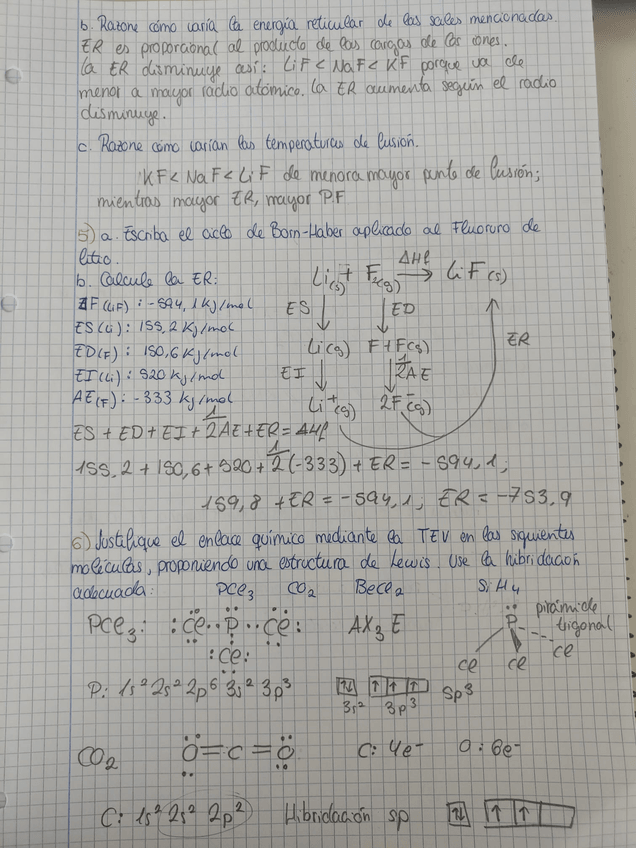 b. Razone cómo varía la energía reticular de las sales mencionadas.
ER es proporcional al producto de las cargas de los iones.
La ER disminuye así: LiF < NaF < KF porque va de
menor a mayor radio atómico. La ER aumenta según el radio
disminuye.
c. Razone cómo varían las temperaturas de fusión.
KF < NaF < LiF de menor a mayor punto de fusión;
mientras mayor ER, mayor P.F
5) a. Escriba el ciclo de Born-Haber aplicado al Fluoruro de
litio.
b. Calcule la ER:
Li(s) + F2(g) → ΔHf LiF(s)
ΔF(LiF): -594,1 kJ/mol
ES(Li): 155,2 kJ/mol
ED(F): 150,6 kJ/mol
EI(Li): 520 kJ/mol
AE(F): -333 kJ/mol
ES ED ER
Li(g) F+F(g)
EI 1/2 AE
Li+(g) 2F-(g)
ES + ED + EI + 1/2 AE + ER = ΔHf
155,2 + 150,6 + 520 + 1/2 (-333) + ER = -594,1;
159,8 + ER = -594,1; ER = -753,9
6) Justifique el enlace químico mediante la TEV en las siguientes
moléculas, proponiendo una estructura de Lewis. Use la hibridación
adecuada: PCl3 CO2 BeCl2 SiH4
PCl3: :Cl··P··Cl: AX3E P pirámide
trigonal
:Cl: Cl Cl Cl
P: 1s2 2s2 2p6 3s2 3p3 ↑↓ ↑ ↑ ↑ sp3
3s2 3p3
CO2 O=C=O C: 4e- O: 6e-
C: 1s2 2s2 2p2 Hibridación sp ↑↓ ↑ ↑